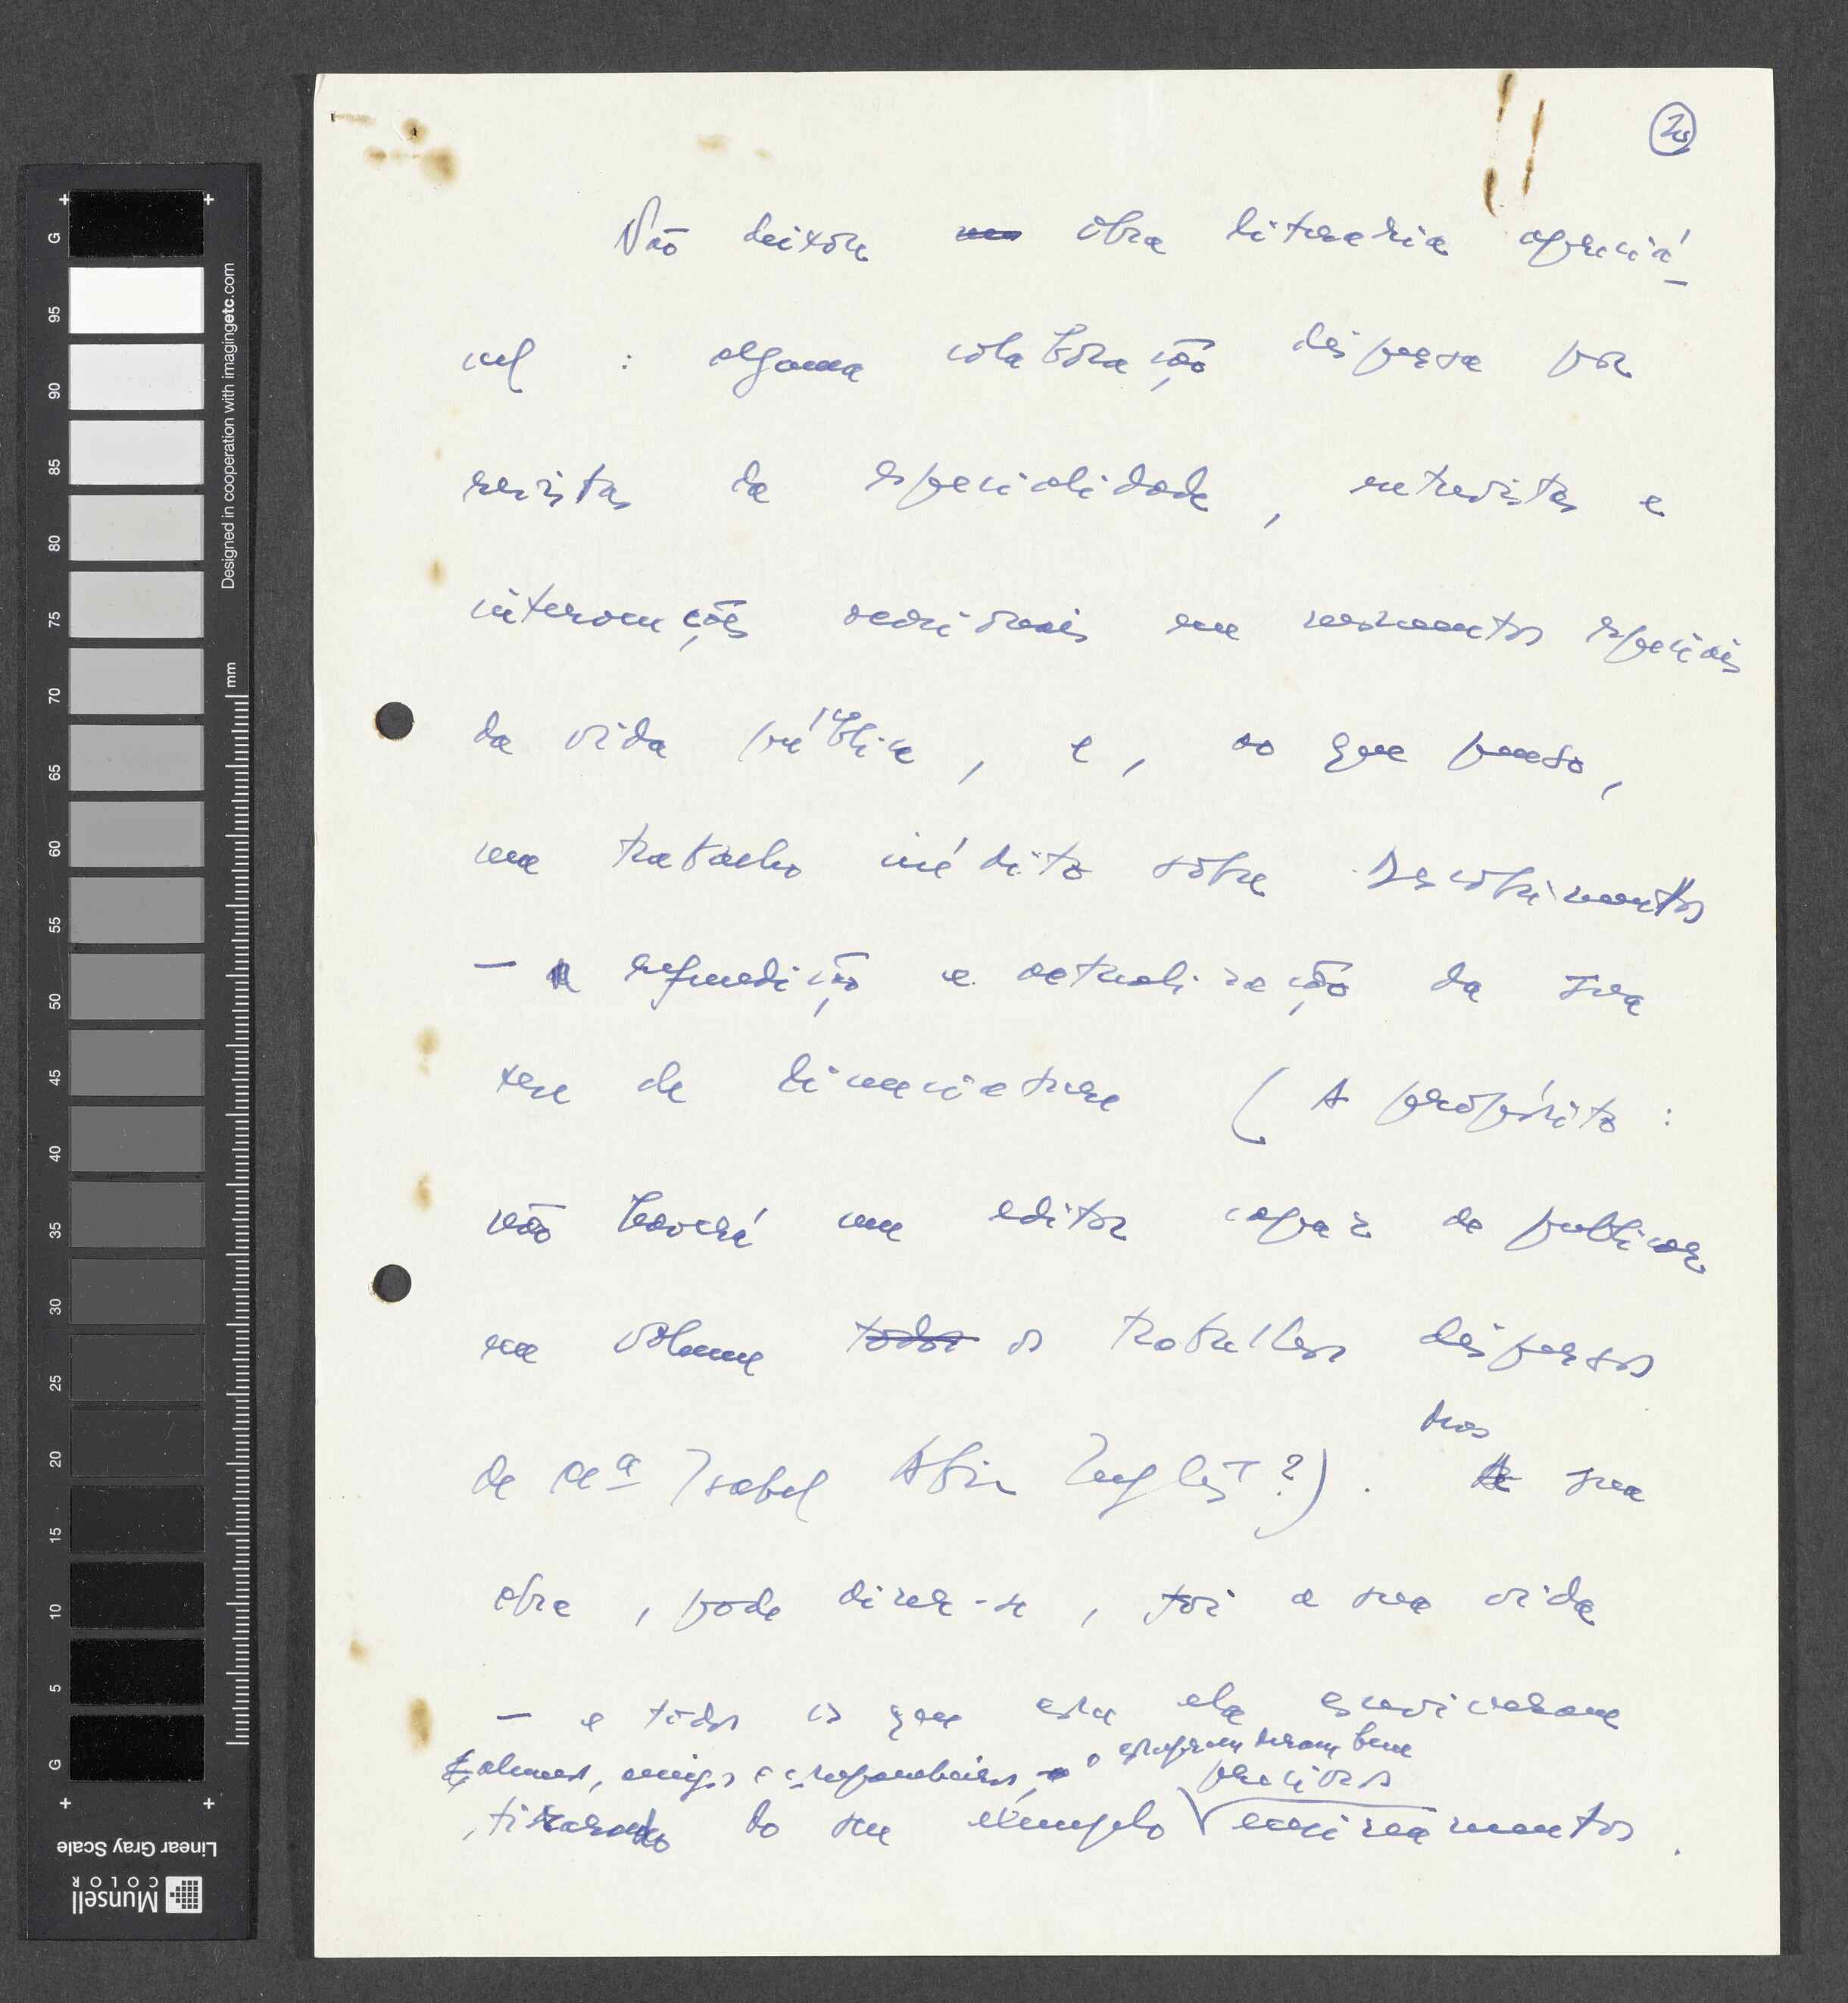 20
Não deixou obra literária apreciá-
vel : alguma colaboração dispersa por
revistas da especialidade, entrevistas e
intervenções ocasionais em momentos especiais
da vida pública, e, ao que penso,
um trabalho inédito sobre Descobrimentos
— refundição e actualização da sua
tese de licenciatura (A propósito :
não haverá um editor capaz de publicar
em volume todos os trabalhos dispersos
de Mª Isabel Abin Inglês ?). Mas
a sua
obra, pode dizer-se, foi a sua vida
— e todos os que com ela conviveram
alunos, amigos e companheiros, o
preciosos
, tirando do seu exemplo ensinamentos.
G
95
90
85
80
75
70
65
60
55
50
45
40
35
30
25
20
15
10
5
G
mm
Designed in cooperation with imagingetc.com
Linear Gray Scale
Munsell
COLOR